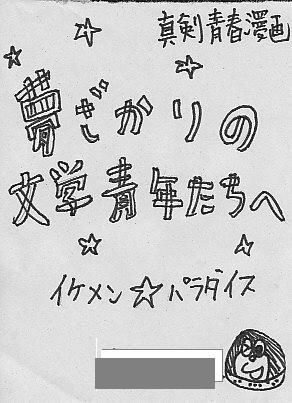 真剣青春漫画
夢ざかりの
文学青年たちへ
イケメン☆パラダイス